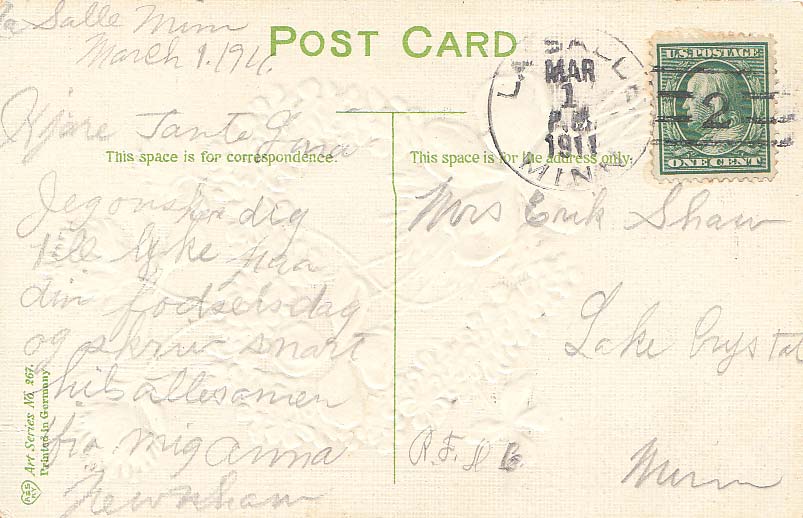 La Salle Minn
March 1. 1911.
POST CARD
LA SALLE
MAR
1
P.M.
1911
MINN
U.S. POSTAGE
2
ONE CENT
Kjare Tante Gina
This space is for correspondence.
This space is for the address only.
Jeg onsker dig
till lyke paa
din fodselsdag
og skriv snart
hils allesamen
fra mig anna
Mrs Erik Shaw
Lake Crystal
R.F.D
Minn
Art Series No. 267.
Printed in Germany